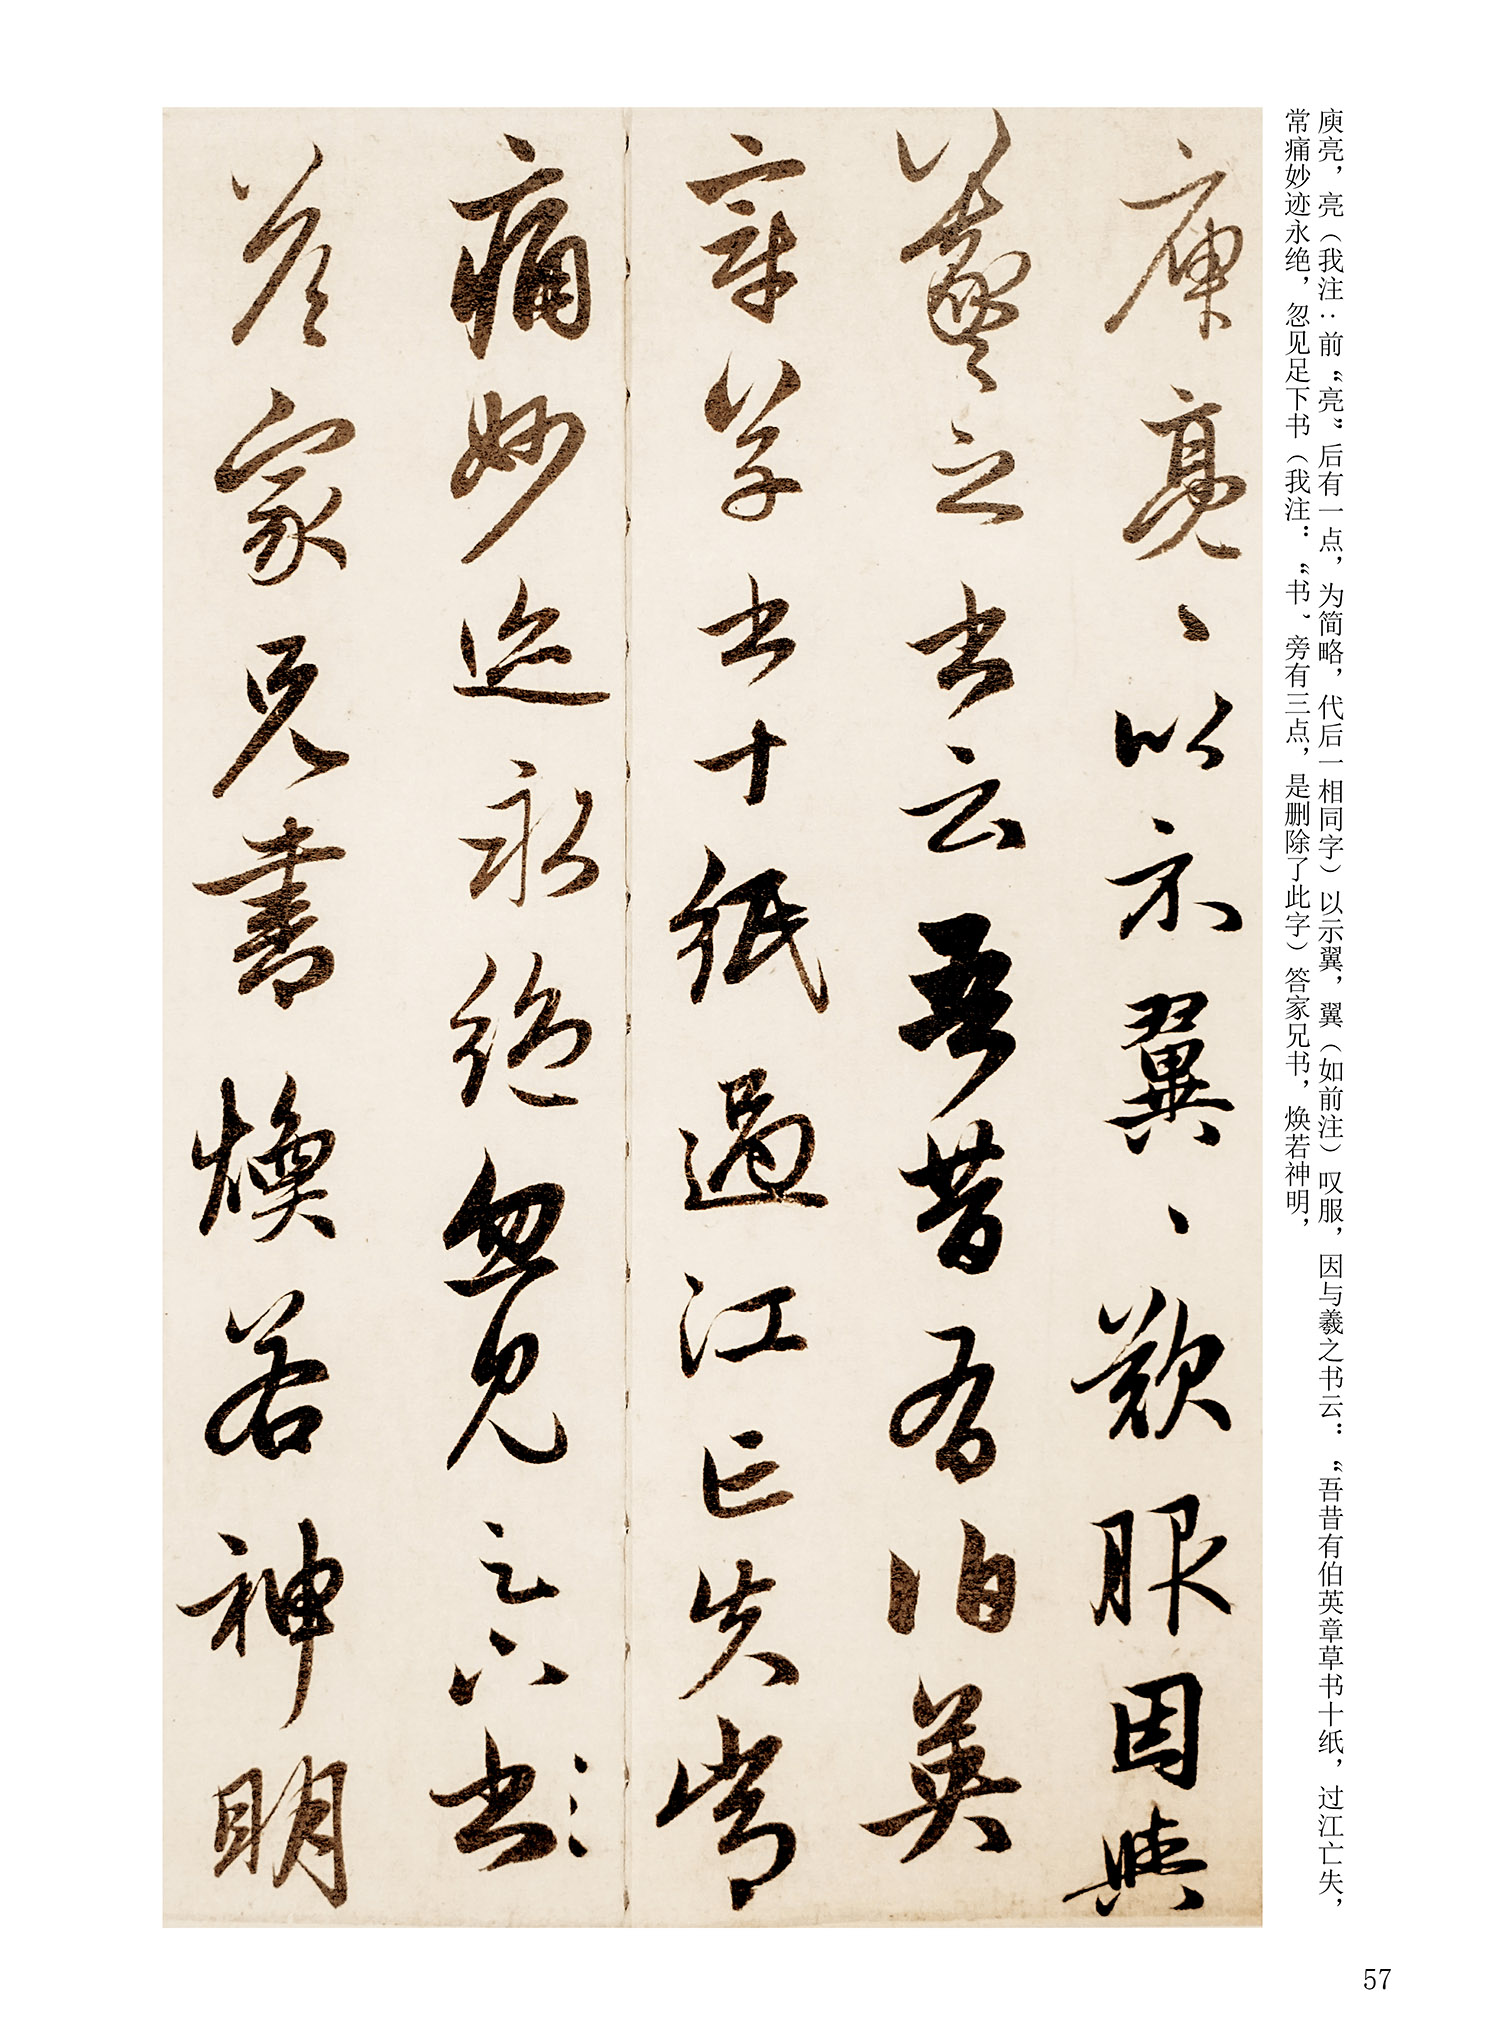 庾亮，亮（我注：前“亮”后有一点，为简略，代后一相同字）以示翼，翼（如前注）叹服，因与羲之书云：“吾昔有伯英章草书十纸，过江亡失，
常痛妙迹永绝，忽见足下书（我注：“书”旁有三点，是删除了此字）答家兄书，焕若神明，
庾亮丶以示翼丶歎服因與
羲之书云吾昔有伯英
章草书十紙過江亡失常
痛妙迹永絶忽見足下书
答家兄書煥若神明
57